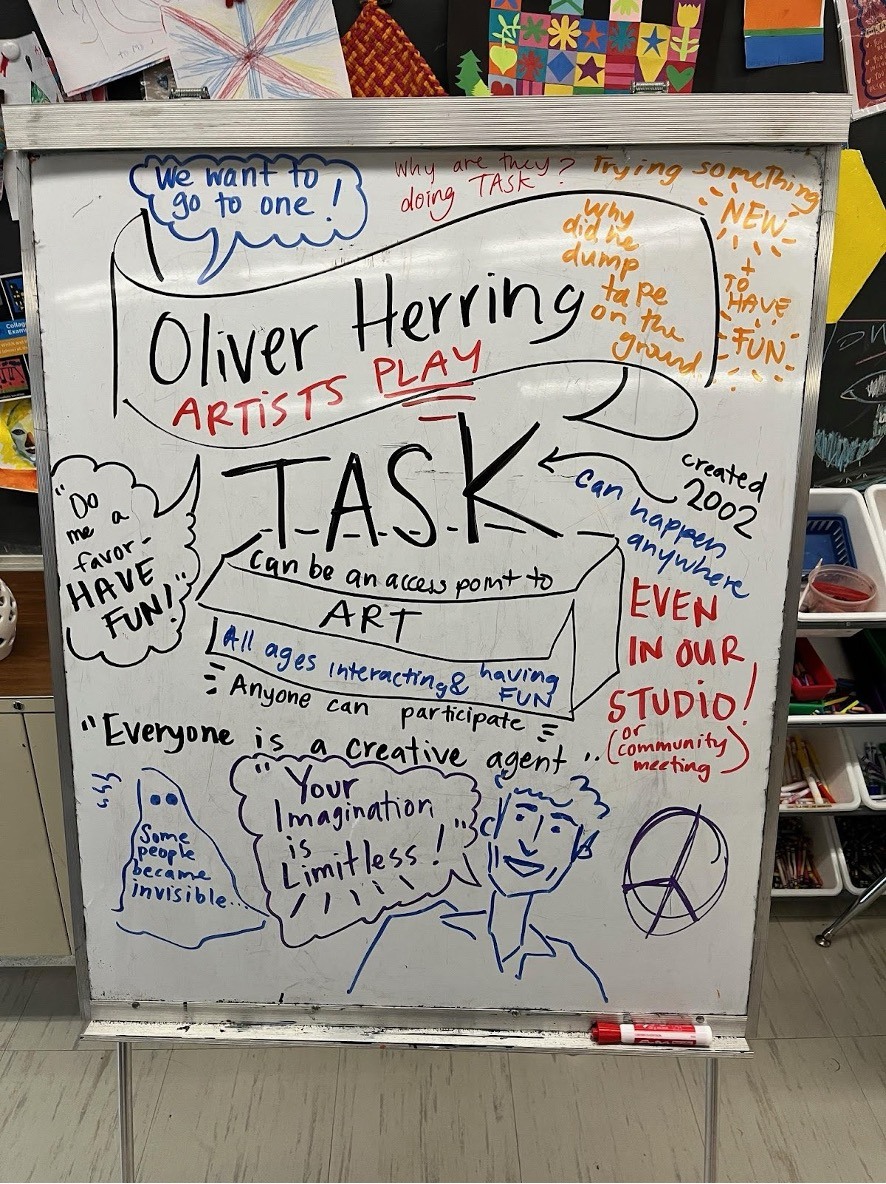 We want to
go to one!
Why are they?
doing TASK
Trying something
NEW
+
TO
HAVE
FUN
Why
did he
dump
tape
on the
ground
Oliver Herring
ARTISTS PLAY
TASK
created
2002
can happen
anywhere
EVEN
IN OUR
STUDIO!
(or
community
meeting)
"Do
me a
favor-
HAVE
FUN!"
Can be an access point to
ART
All ages interacting & having
FUN
Anyone can participate
"Everyone is a creative agent"
Some
people
became
invisible...
"Your
Imagination
is
Limitless!"